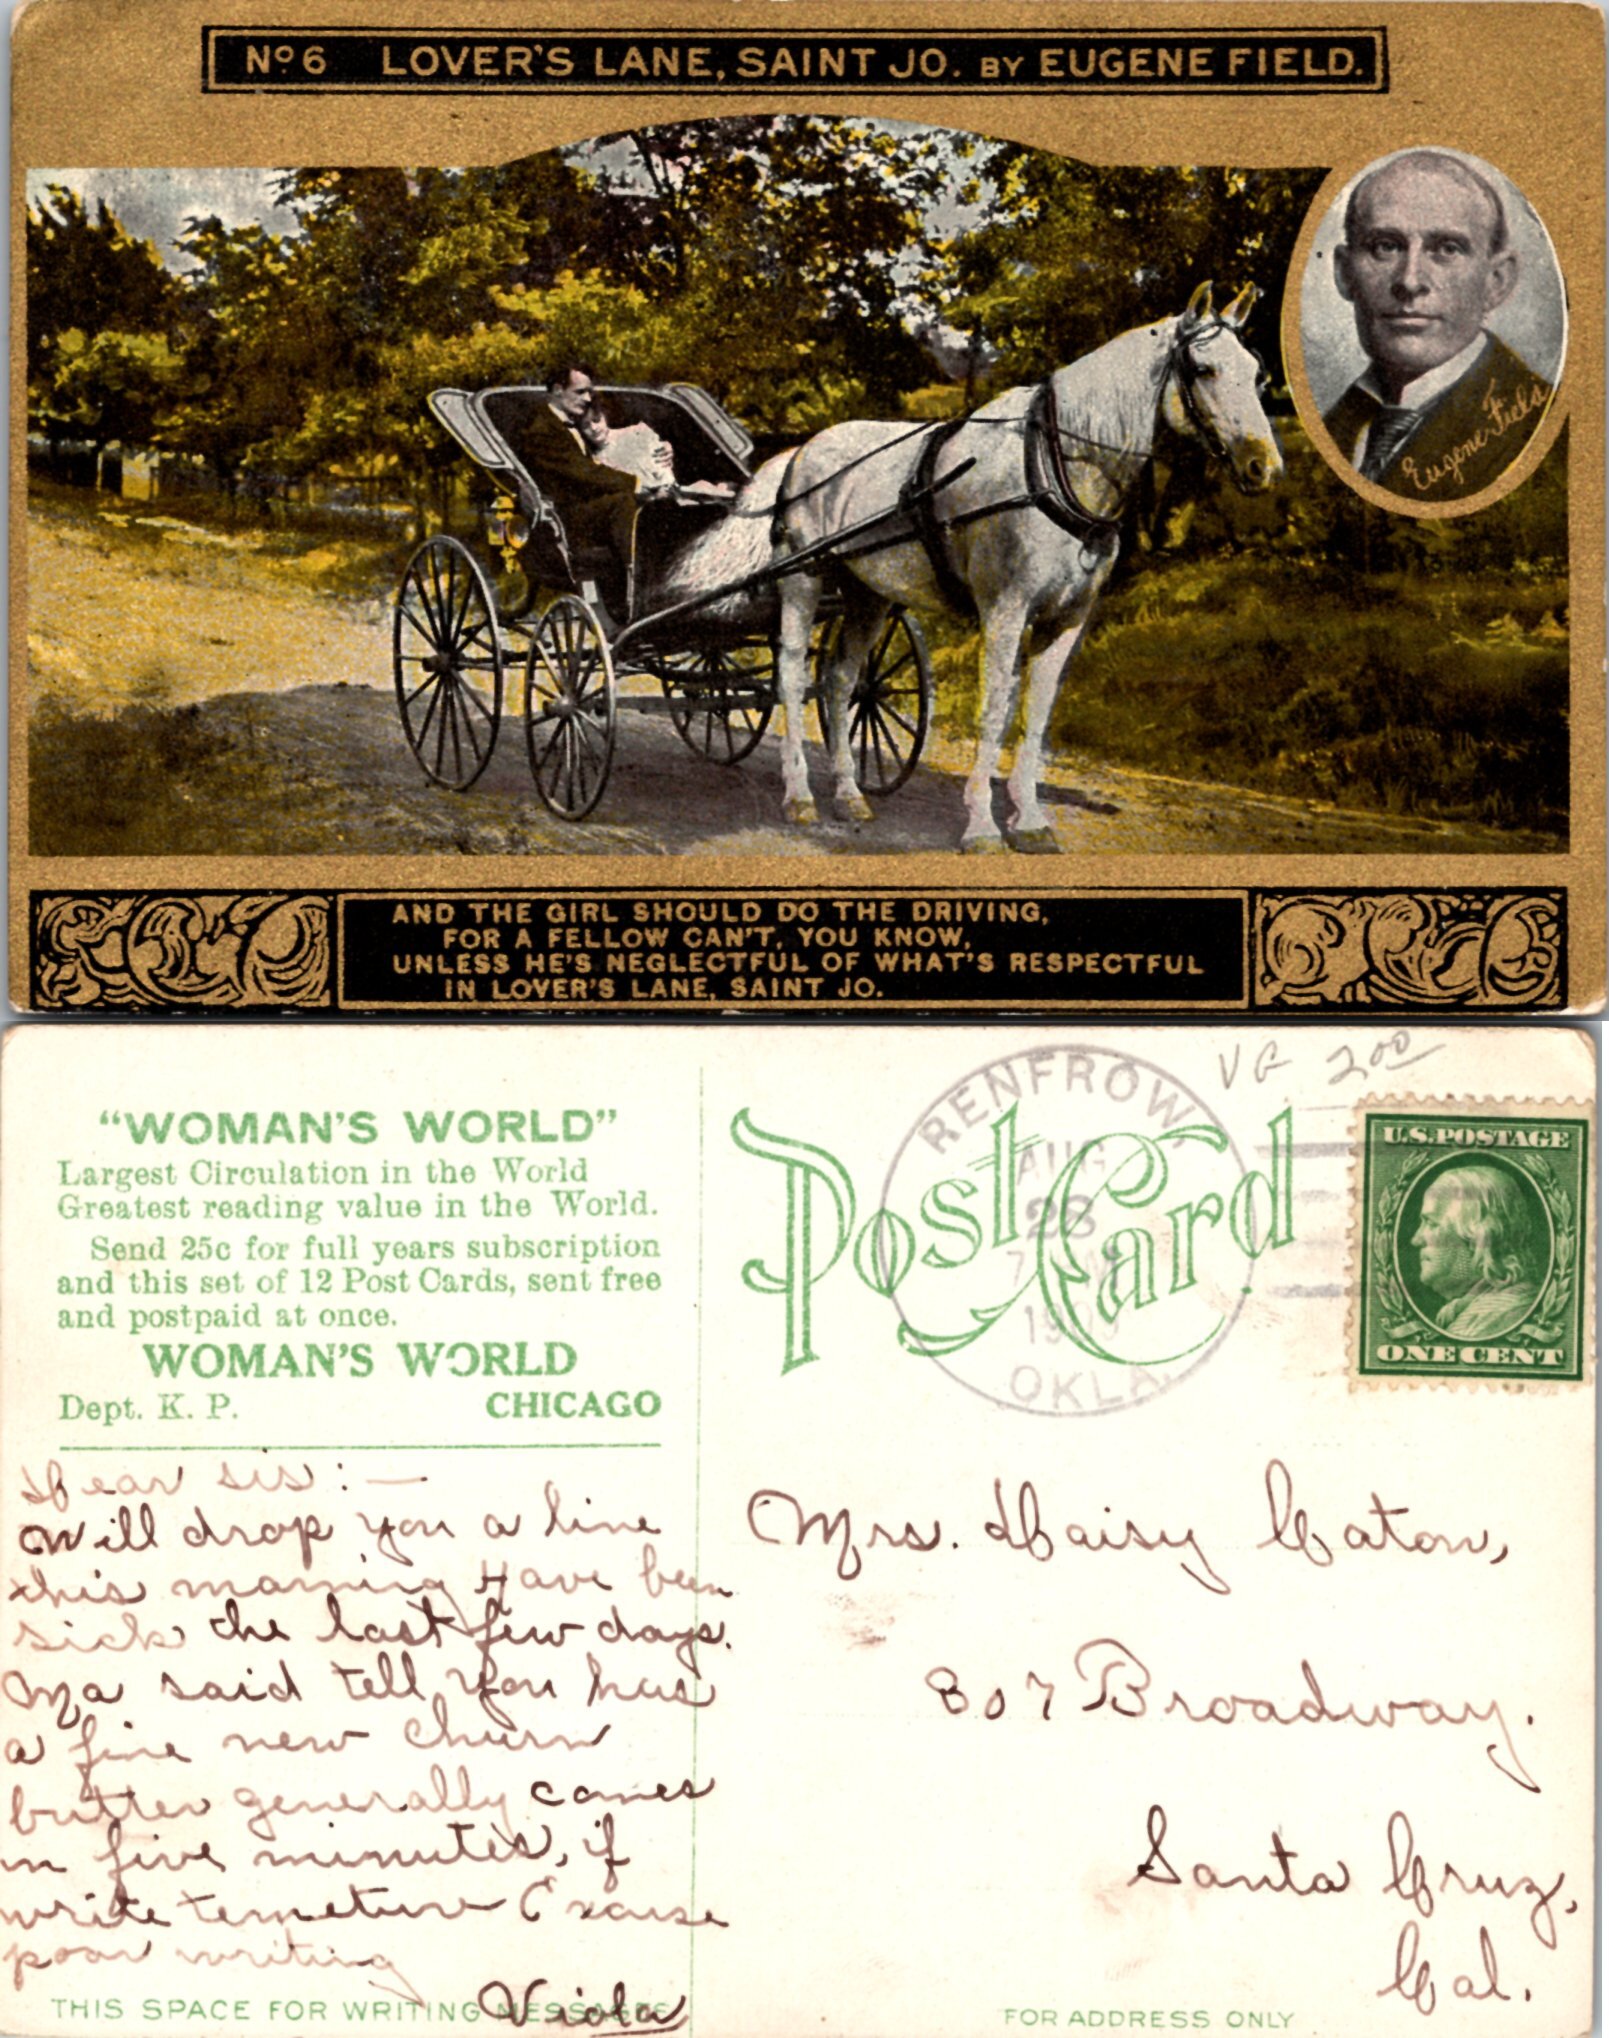 No 6 LOVER'S LANE, SAINT JO. BY EUGENE FIELD.
Eugene Field
AND THE GIRL SHOULD DO THE DRIVING,
FOR A FELLOW CAN'T, YOU KNOW,
UNLESS HE'S NEGLECTFUL OF WHAT'S RESPECTFUL
IN LOVER'S LANE, SAINT JO.
VG 2.00
"WOMAN'S WORLD"
Largest Circulation in the World
Greatest reading value in the World.
Send 25c for full years subscription
and this set of 12 Post Cards, sent free
and postpaid at once.
WOMAN'S WORLD
Dept. K. P. CHICAGO
Post Card
RENFROW,
AUG
28
7
1909
OKLA.
U.S. POSTAGE
ONE CENT
Dear sis:—
Will drop you a line
this morning Have been
sick the last few days.
Ma said tell you has
a fine new churn
butter generally comes
in five minutes, if
write temeture Excuse
poor writing
Viola
THIS SPACE FOR WRITING MESSAGES
Mrs. Daisy Caton,
807 Broadway.
Santa Cruz,
Cal.
FOR ADDRESS ONLY